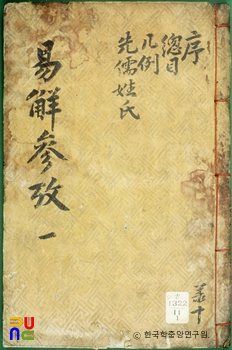 序
總目
凡例
先儒姓氏
易觧參攷 一
1322
© 한국학중앙연구원